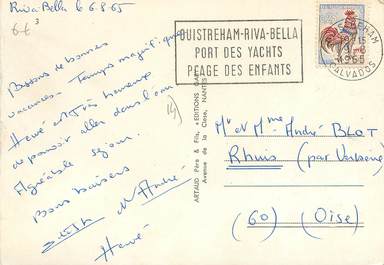 Riva-Bella le 6.8.65
6€ 3
OUISTREHAM-RIVA-BELLA
PORT DES YACHTS
PLAGE DES ENFANTS
OUISTREHAM
19 H 15
6 - 8
1965
CALVADOS
Passons de bonnes
vacances. Temps magnifique
Hervé est très heureux
de pouvoir aller dans l'eau
Agréable séjour.
Bons baisers
Edith André
Hervé
ARTAUD Père & Fils, « EDITIONS GABY »
Avenue de la Close, NANTES
Mr et Mme André BLOT
Rhuis (par Verberie)
(60) (Oise)